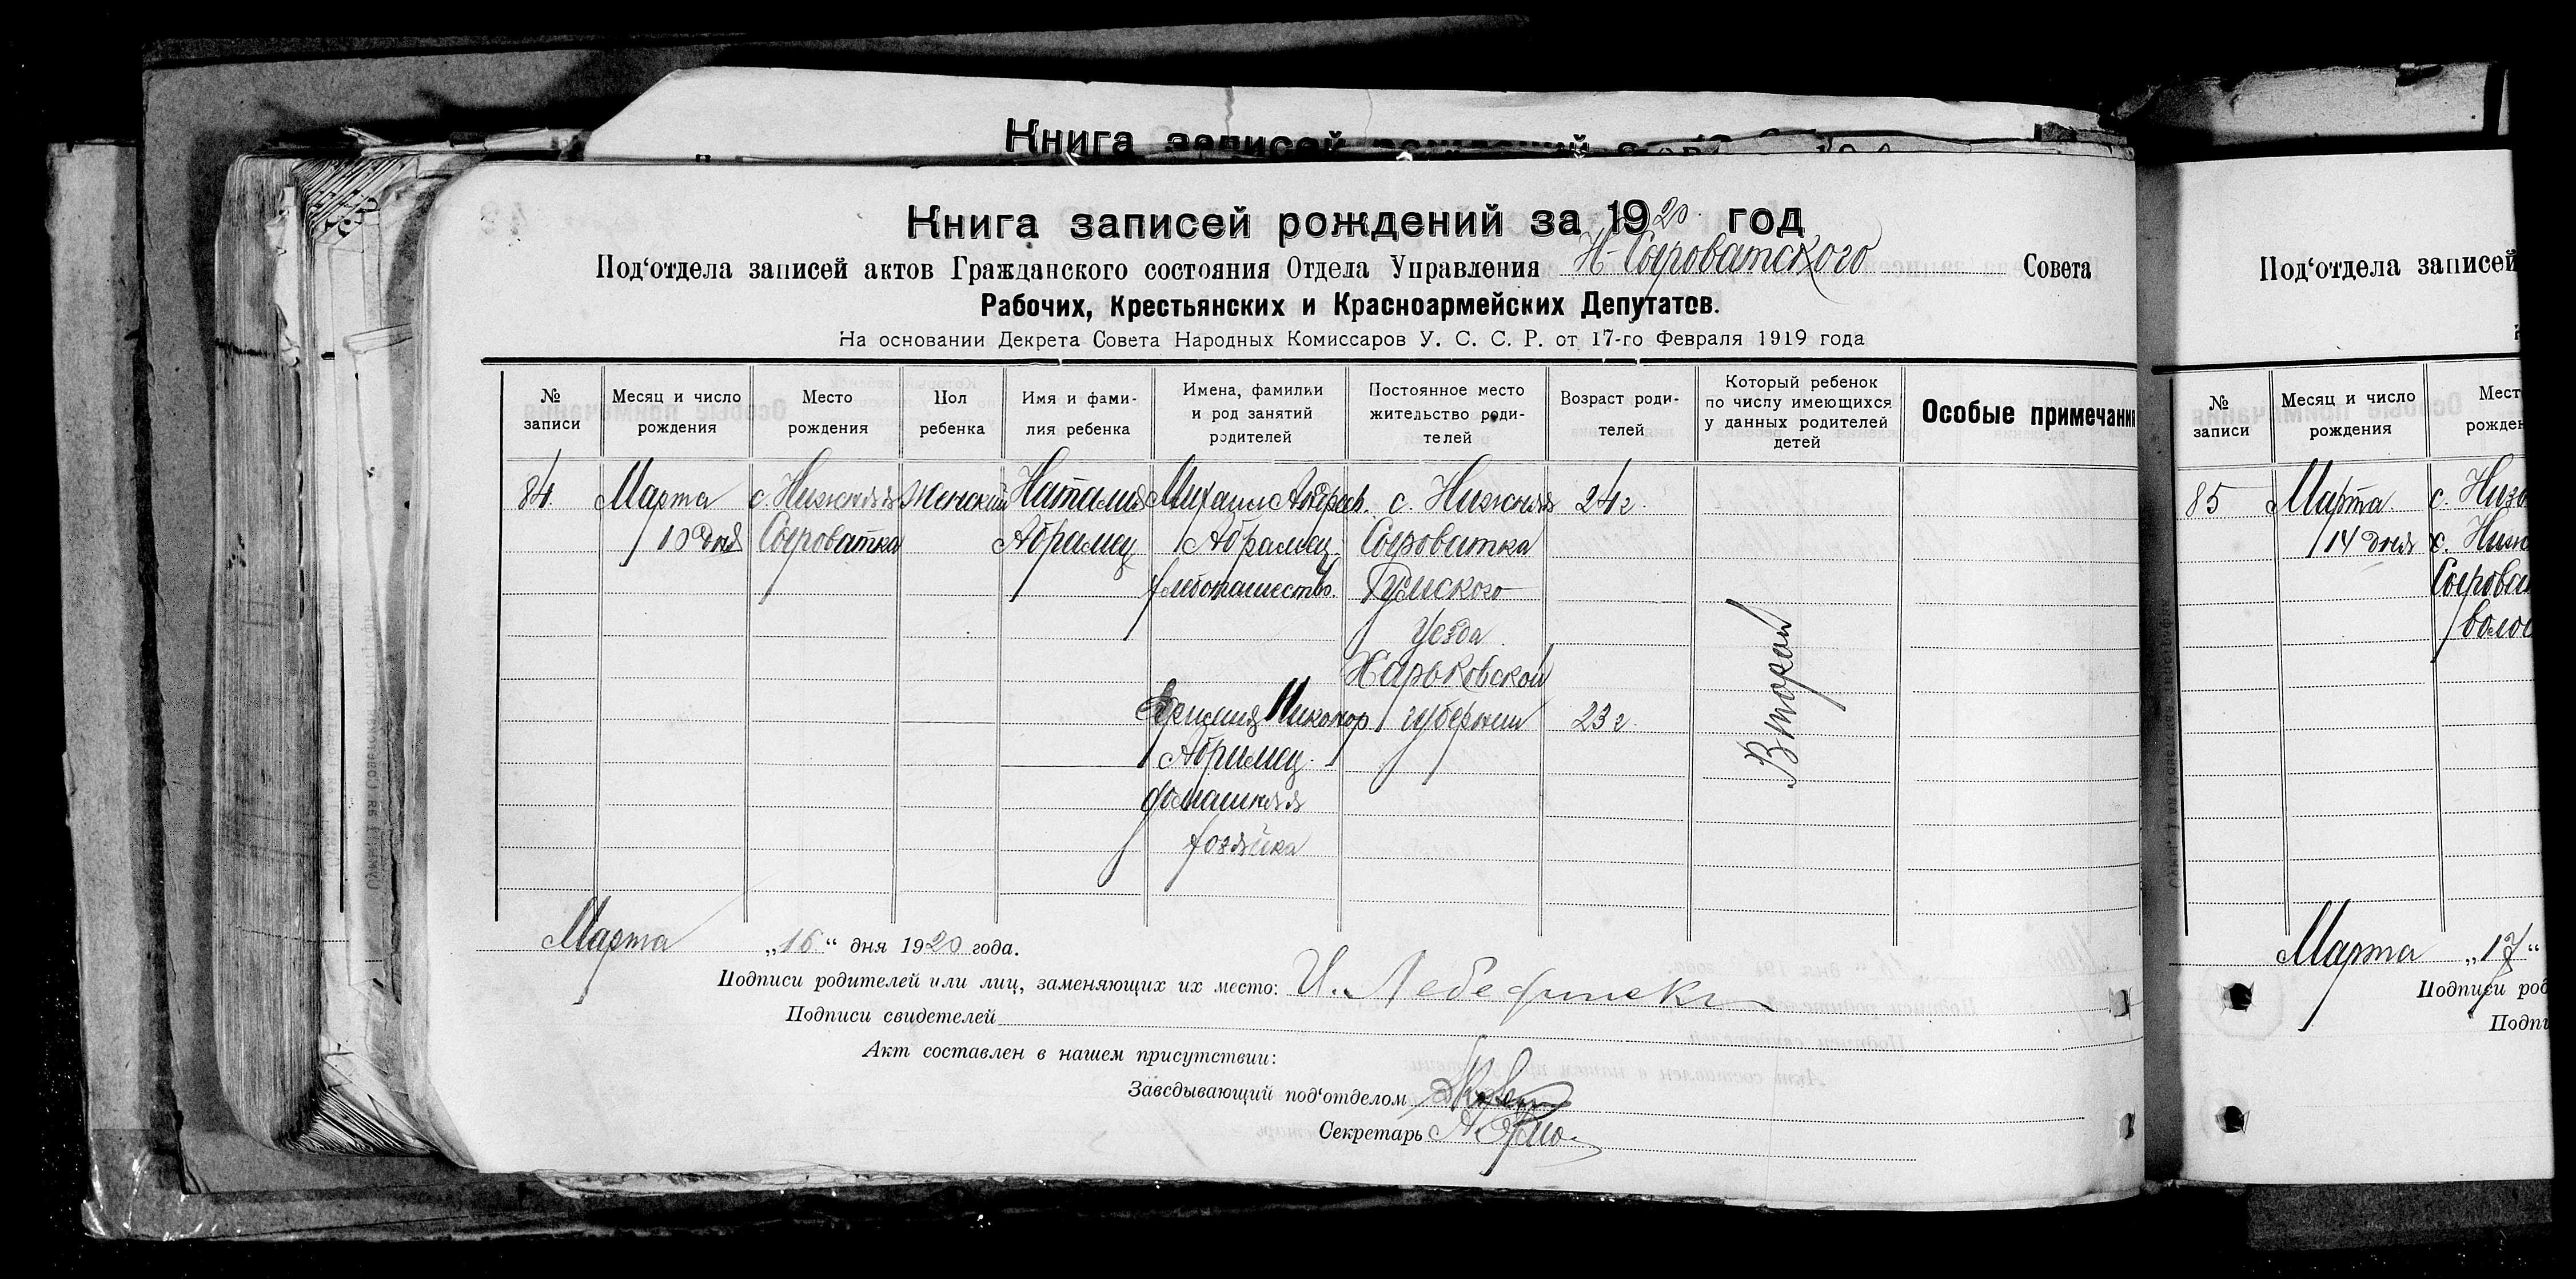 Книга записей
Книга записей рождений за 1920 год
Под‘отдела записей актов Гражданского состояния Отдела Управления Н-Сыроватского Совета
Рабочих, Крестьянских и Красноармейских Депутатов.
На основании Декрета Совета Народных Комиссаров У. С. С. Р. от 17-го Февраля 1919 года
№ записи
Месяц и число рождения
Место рождения
Пол ребенка
Имя и фамилия ребенка
Имена, фамилии и род занятий родителей
Постоянное место жительство родителей
Возраст родителей
Который ребенок по числу имеющихся у данных родителей детей
Особые примечани
84.
Марта
дня
с. Нижняя
Сыроватка
Женский
Наталия
Абрамец
Михаил Андреев.
Абрамец
хлебопашество.
Никанор
Абрамец.
домашняя
хозяйка
с. Нижняя
Сыроватка
Сумского
уезда
Харьковской
губернии
24 г.
23 г.
Второй
Марта „16“ дня 1920 года.
Подписи родителей или лиц, заменяющих их место: И. Лебединск
Подписи свидетелей
Акт составлен в нашем присутствии:
Заведывающий под‘отделом
Секретарь
Под‘отдела записей
№ записи
Месяц и число рождения
Мест
рожден
85
Марта
14 дня
с. Низ
с. Ниж
Сырова
воло
Марта „17“
Подписи род
Подпи